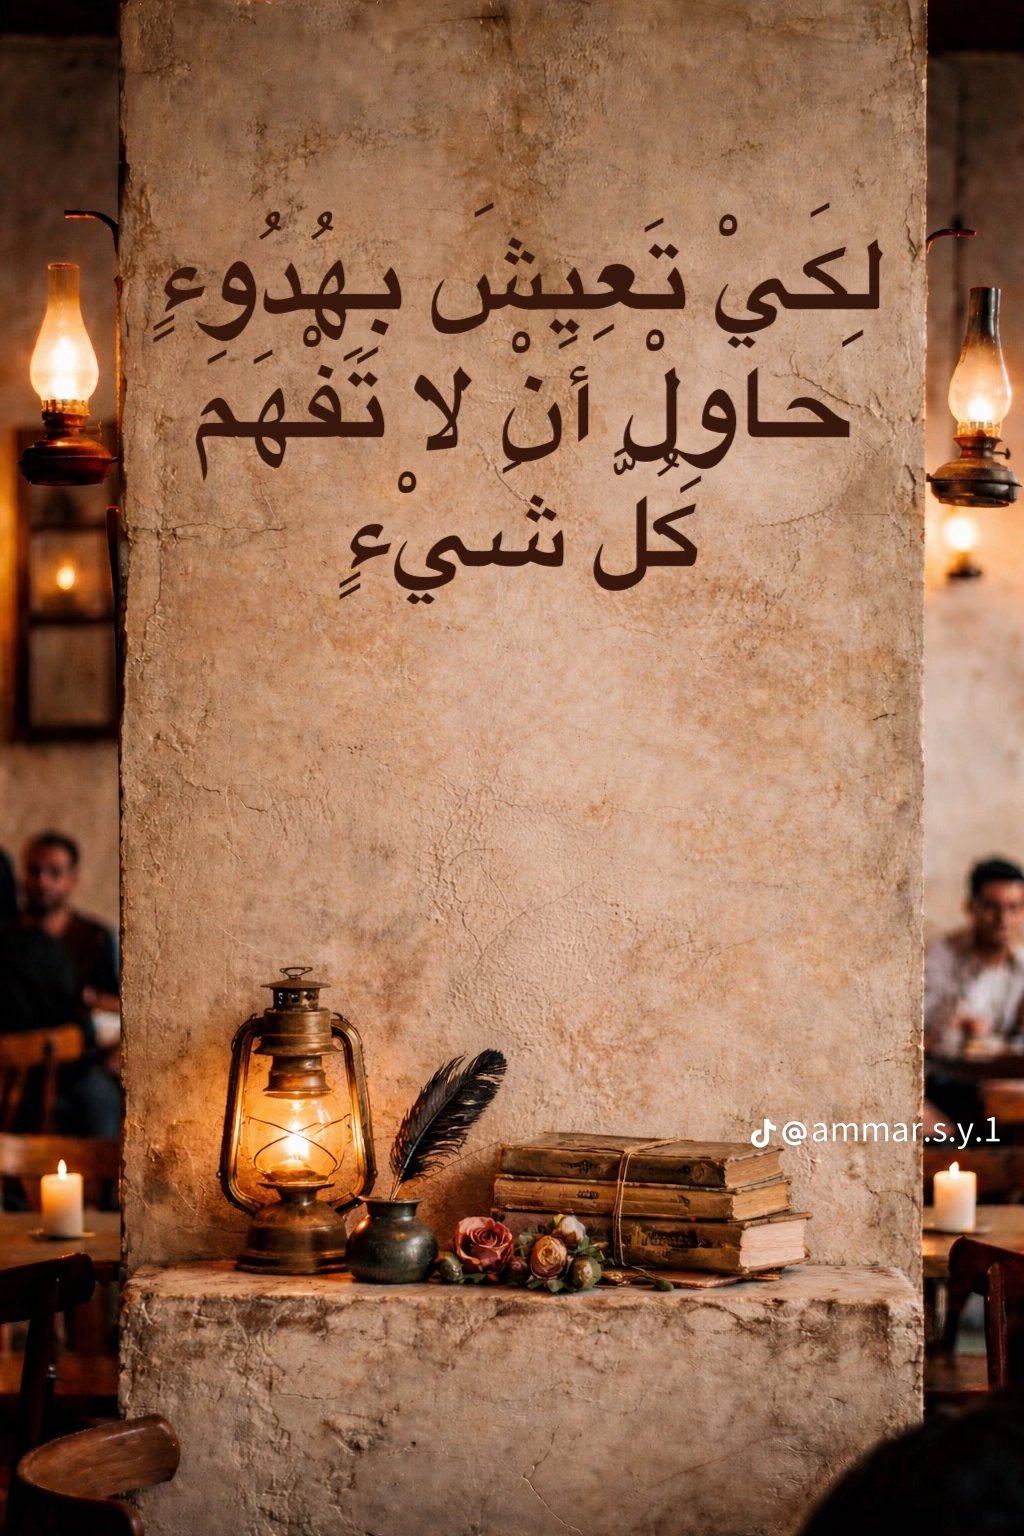 لِكَيْ تَعِيِشَ بِهُدُوءٍ
حاوِلْ أنْ لا تَفْهَمَ
كُلَّ شيْءٍ
@ammar.s.y.1